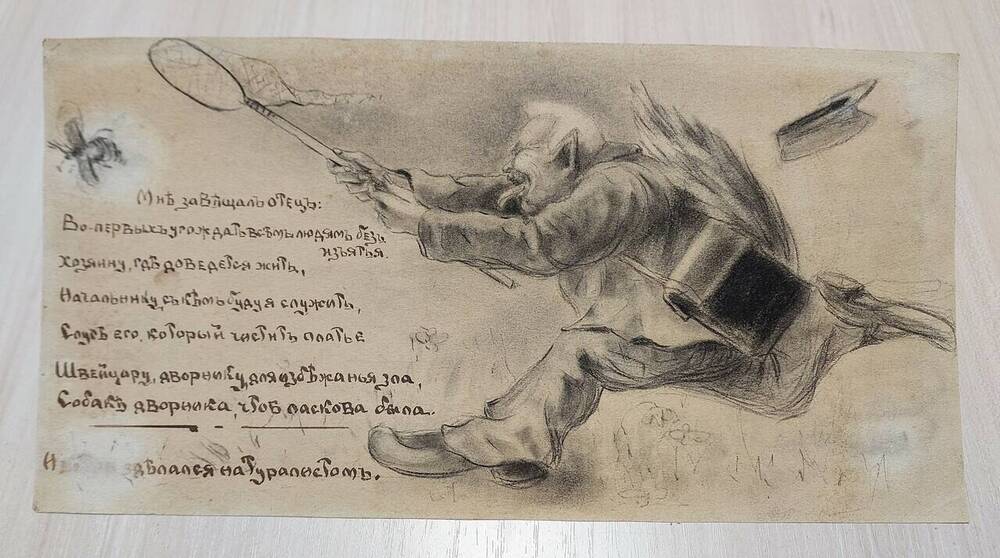 Мнѣ завѣщалъ отецъ:
Во-первыхъ угождать всѣмъ людямъ безъ
изъятья.
Хозяину, гдѣ доведется жить,
Начальнику, съ кѣмъ буду я служить,
Слугѣ его, который чиститъ платье
Швейцару, дворнику, для избѣжанья зла,
Собакѣ дворника, чтоб ласкова была.
здѣлался натуралистомъ.